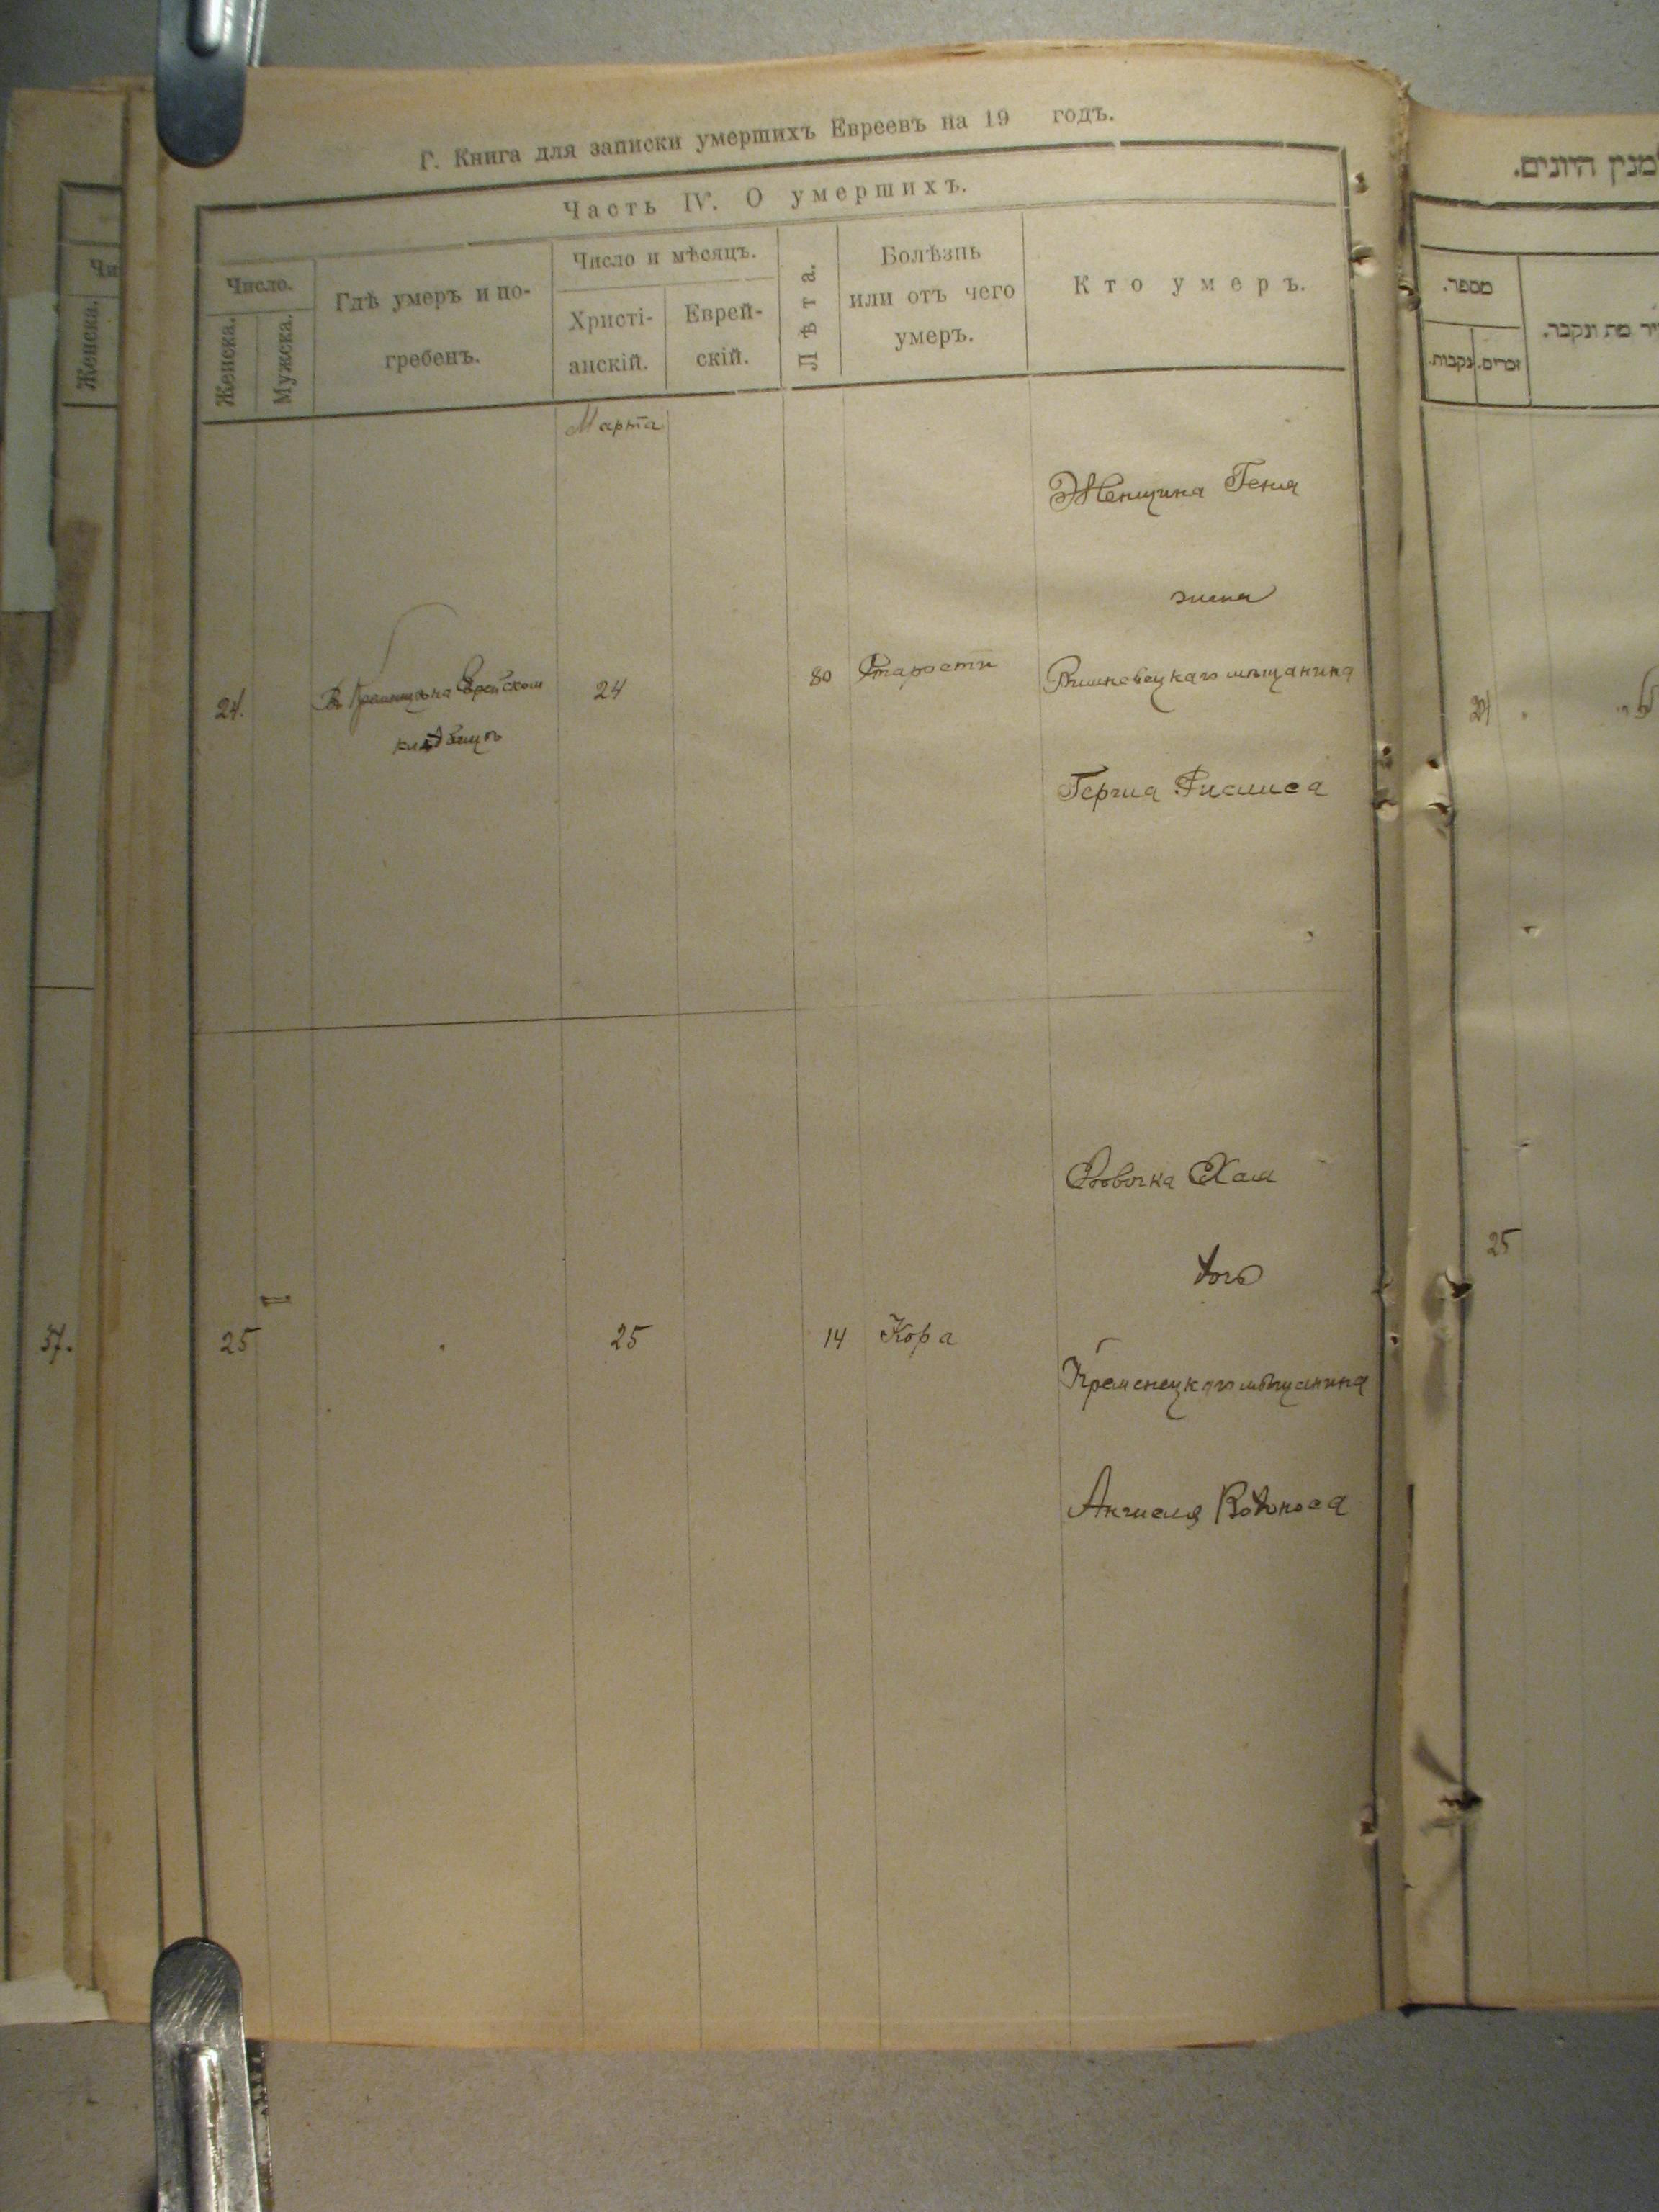 Г. Книга для записки умершихъ Евреевъ на 19 годъ.
Часть IV. О умершихъ.
Число.
Женска.
Мужска.
Гдѣ умеръ и по-
гребенъ.
Число и мѣсяцъ.
Христі-
анскій.
Еврей-
скій.
Лѣта.
Болѣзнь
или отъ чего
умеръ.
Кто умеръ.
Марта
24.
Въ на Еврейском
кладбищѣ
24
80
Старости
Женщина Геня
жена
Вишневецкаго мѣщанина
Герша
25
25
14
Кора
Дѣвочка Хая
дочь
Кременецкаго мѣщанина
Анчеля Водоноса
Чи
Женска.
37.
למנין היונים.
מספר.
נקבות.
זכרים.
מת ונקבר.
24
25